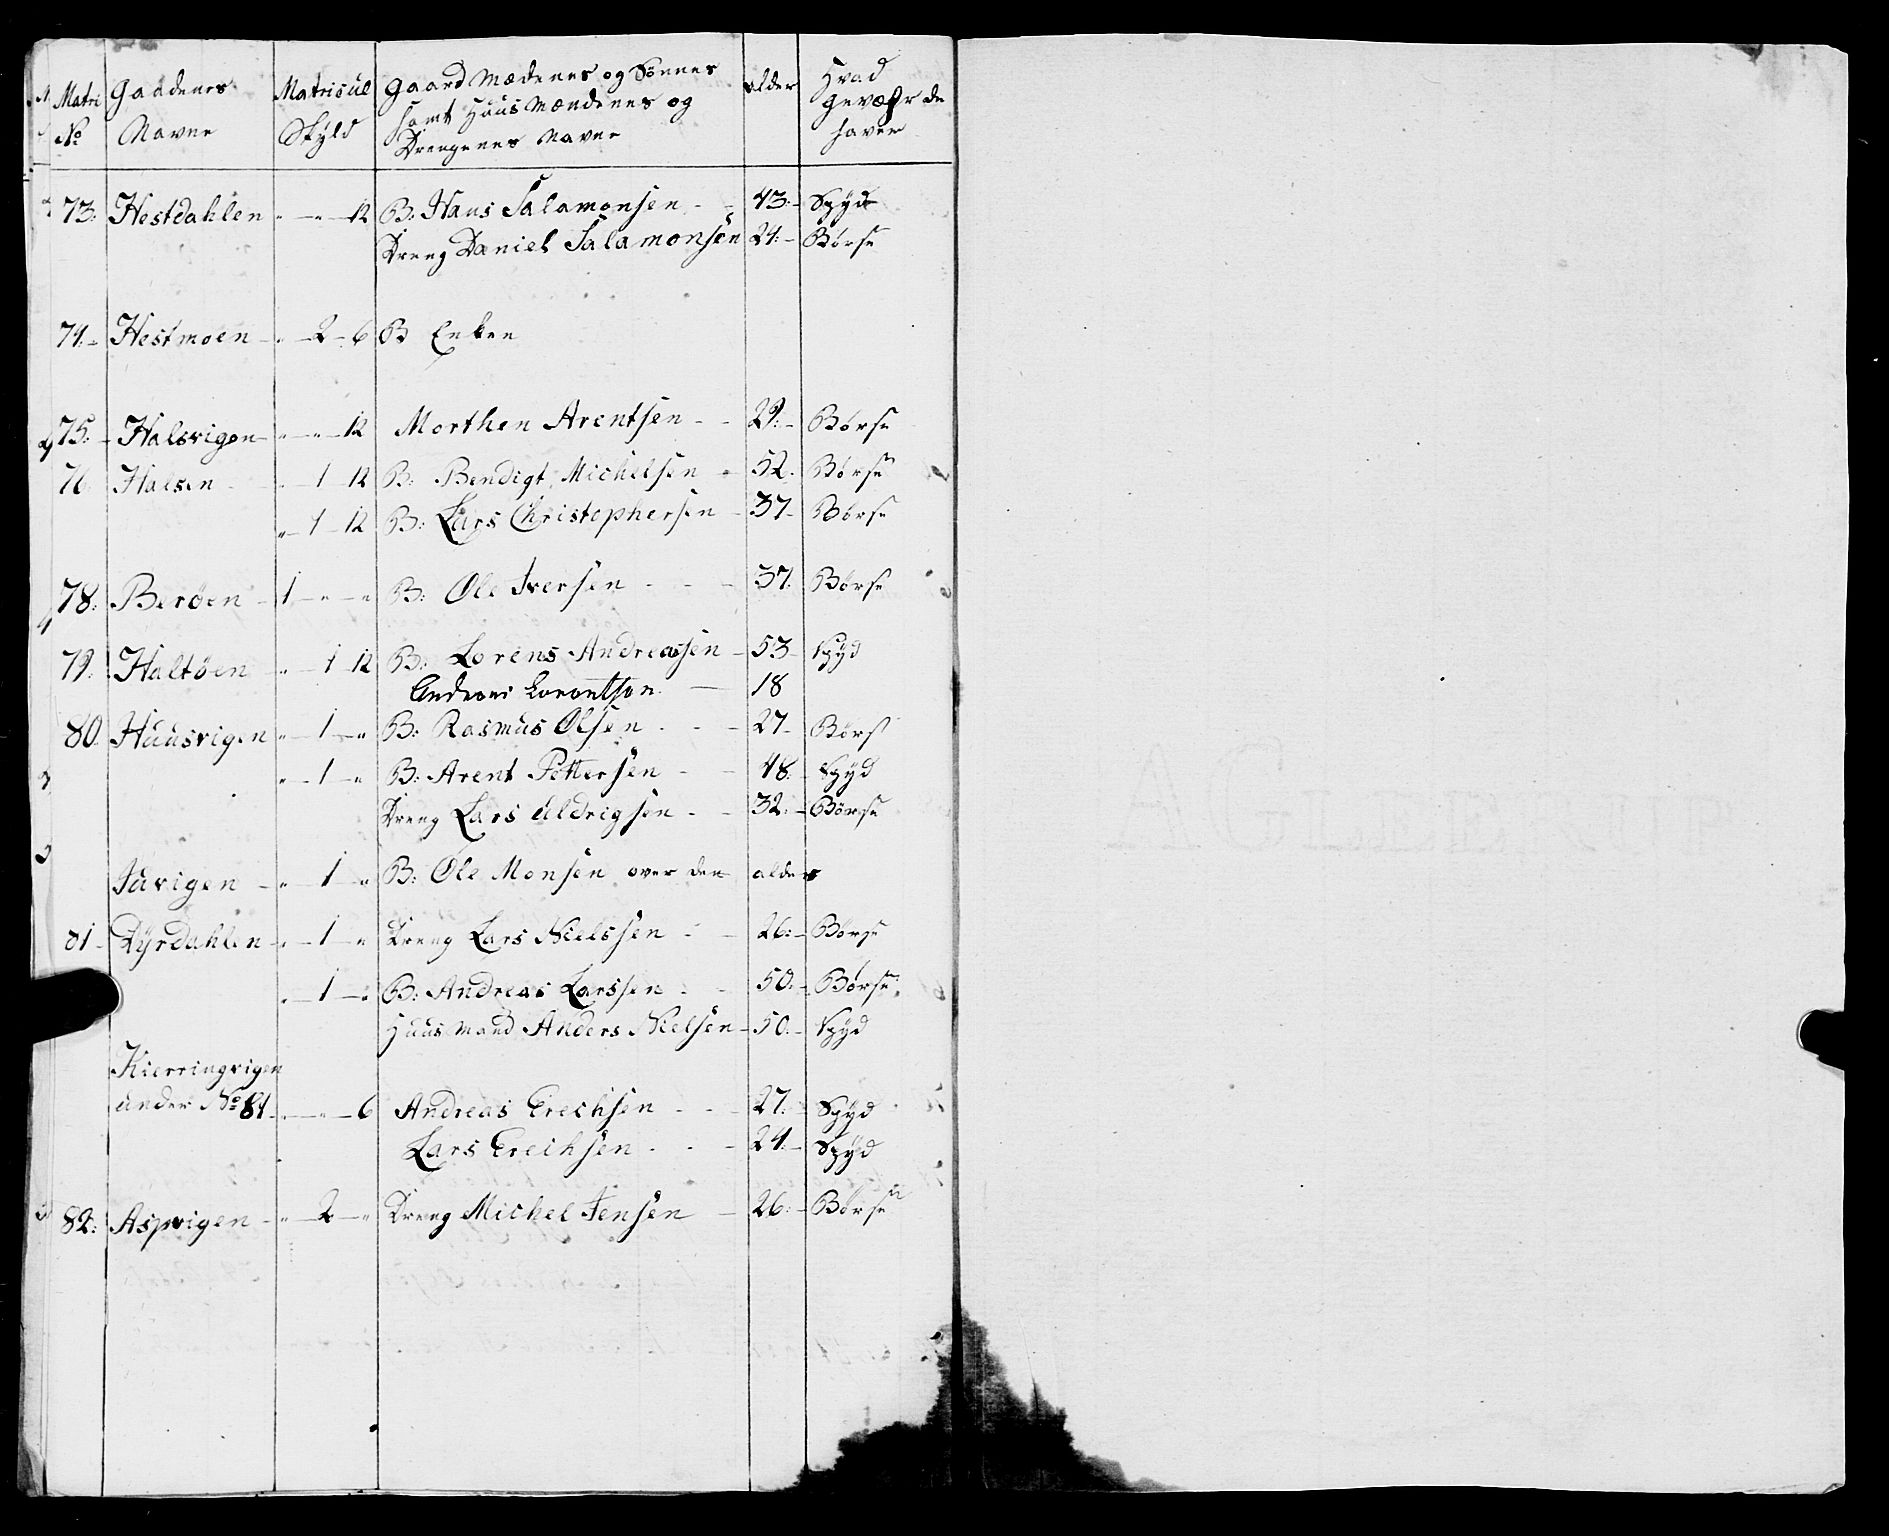 Matri No | Gaadenes Navne | Matricul Skyld | Gaard Mædenes og Sønnes samt Huus Mændenes og Drengenes Navne | alder | Hvad Gevæhr de haver
73: Hestdahlen " — " — 12 B: Hans Salamonsen - - 43:- Spyd
Dreng Daniel Salamonsen 24:- Børse
74:- Hestmoen - " — 2 - 6 B Enken
75:- Halsvigen - " — " — 12 Morthen Arentsen - - 29:- Børse
76 Halsen - " — 1 - 12 B: Bendigt Michelsen - 52. Børse
" — 1 - 12 B: Lars Christophersen - 37- Børse
78: Berøen - 1 — " — " B: Ole Iversen - - - 37: Børse
79: Haltøen - " — 1 - 12 B: Lorens Andreassen - 53- Spyd
Andreas Lorentsen — 18
80 Huusvigen " — 1 — " B: Rasmus Olsen - - - 27- Børs
" — 1 — " B: Arent Pettersen - - 48:- Spyd
Dreng Lars Aldrigsen - - 32:- Børse
Juvigen - " — 1 — " B: Ole Monsen over den alder
81- Dyrdahlen - " — 1 — " Dreng Lars Nielssen - - 26:- Børse
" — 1 — " B: Andreas Larssen - - 50:- Børse
Huus Mand Anders Nielsen - 50:- Spyd
Kierringvigen
under No 81 - " — " — 6 Andreas Erechsen - - - 27:- Spyd
Lars Erechsen - - - 24:- Spyd
82: Aspvigen - " — 2 — " Dreng Michel Jensen - 26:- Børse